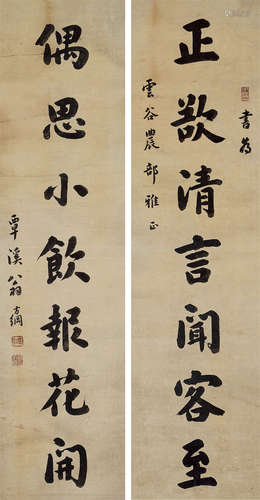 書為
正欲清言聞客至
雲谷農部雅正
偶思小飲報花開
覃溪翁方綱